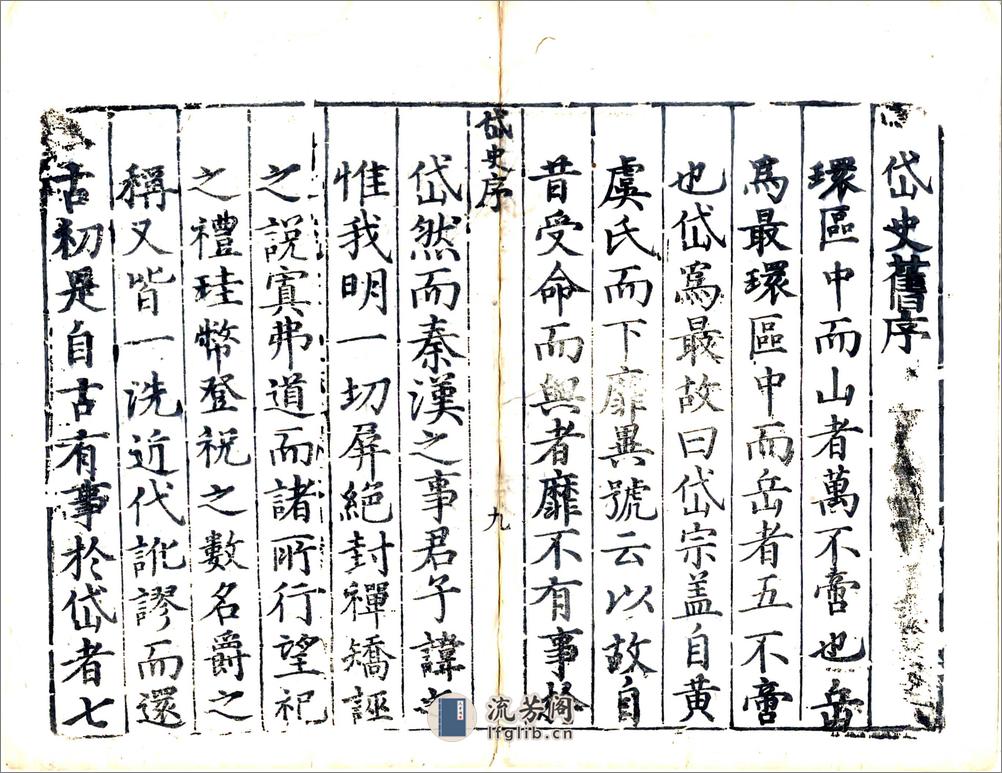 岱史舊序
環區中而山者萬不啻也岳
爲最環區中而岳者五不啻
也岱爲最故曰岱宗盖自黄
虞氏而下靡異號云以故自
昔受命而興者靡不有事於
岱史序
九
岱然而秦漢之事君子諱之
惟我明一切屏絶封禪矯誣
之說寘弗道而諸所行望祀
之禮珪幣登祝之數名爵之
稱又皆一洗近代訛謬而還
古初是自古有事於岱者七
流芳阁
lfglib.cn